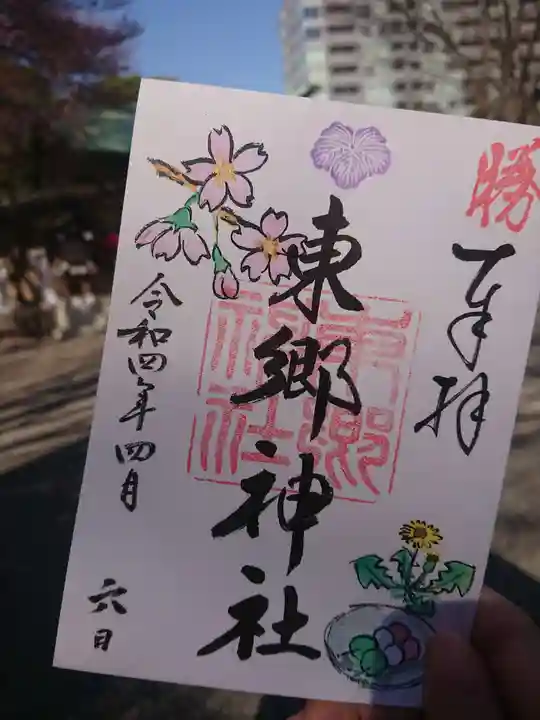 勝
奉拝
東郷神社
東郷神社
令和四年四月
六日